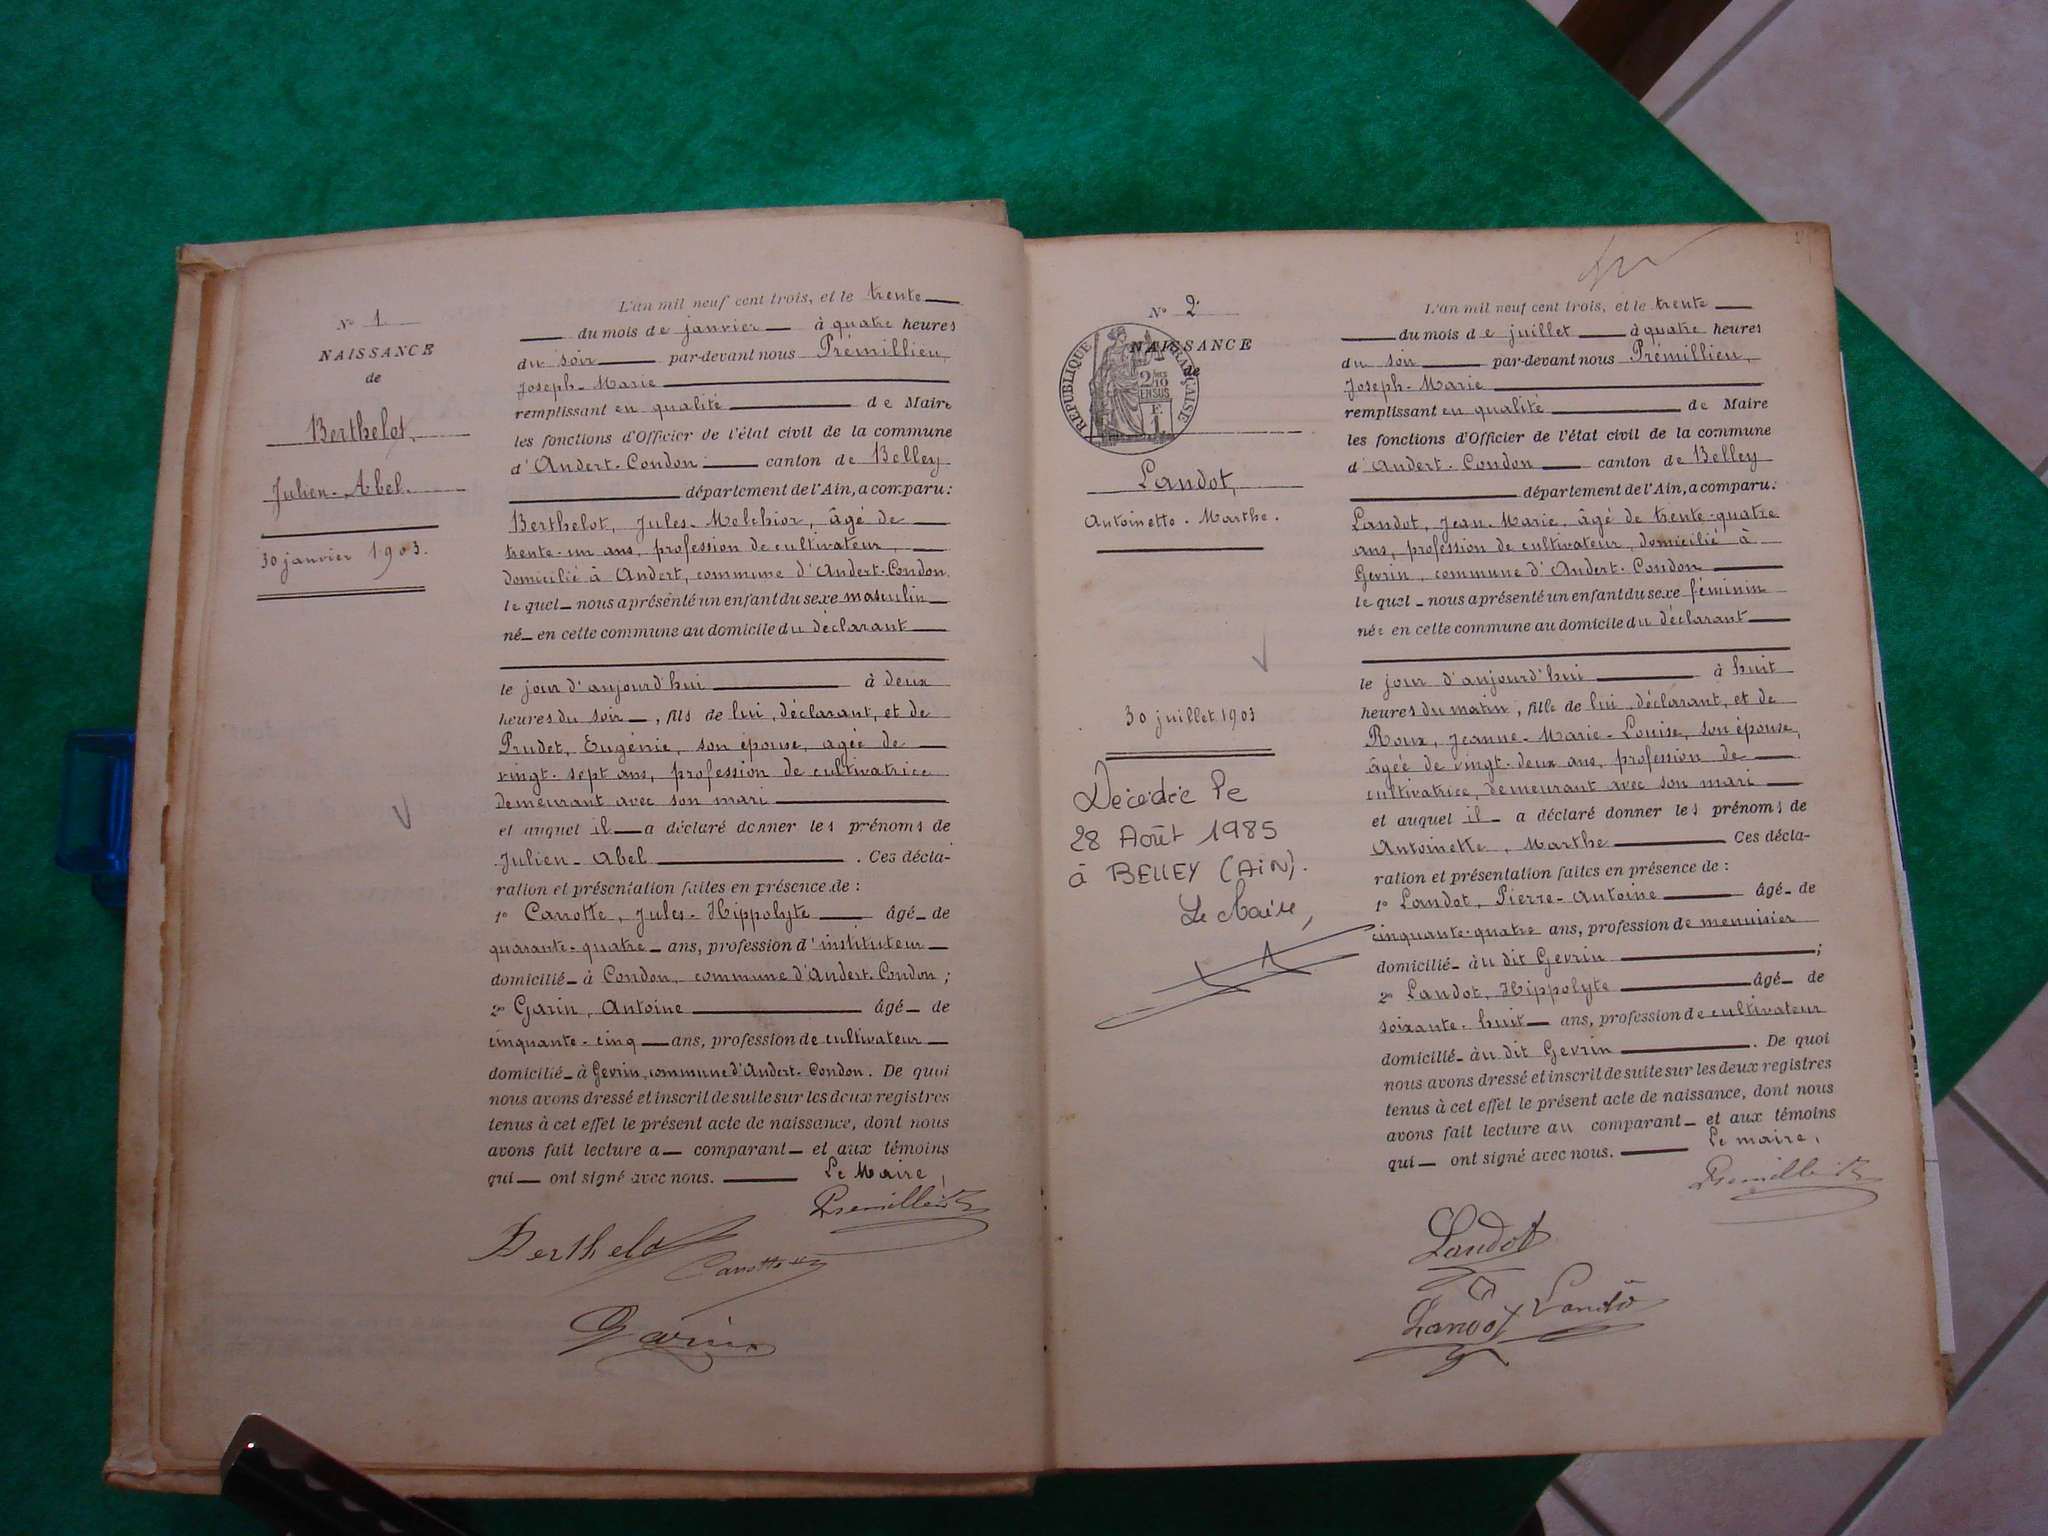 Nº 1
NAISSANCE
de
Berthelot,
Julien-Abel.
30 janvier 1903.
L'an mil neuf cent trois, et le trente
du mois de janvier à quatre heures
du soir par-devant nous Prémillieu,
Joseph-Marie
remplissant en qualité de Maire
les fonctions d'Officier de l'état civil de la commune
d'Andert-Condon canton de Belley
département de l'Ain, a comparu:
Berthelot, Jules-Melchior, âgé de
trente-un ans, profession de cultivateur,
domicilié à Andert, commune d'Andert-Condon
le quel nous a présenté un enfant du sexe masculin
né en cette commune au domicile du déclarant
le jour d'aujourd'hui à deux
heures du soir, fils de lui, déclarant, et de
Prudet, Eugénie, son épouse, agée de
vingt-sept ans, profession de cultivatrice
demeurant avec son mari
et auquel il a déclaré donner les prénoms de
Julien-Abel. Ces décla-
ration et présentation faites en présence de:
1º Carrotte, Jules-Hippolyte âgé de
quarante-quatre ans, profession d'instituteur
domicilié à Condon, commune d'Andert-Condon;
2º Garin, Antoine âgé de
cinquante-cinq ans, profession de cultivateur
domicilié à Gevrin, commune d'Andert-Condon. De quoi
nous avons dressé et inscrit de suite sur les deux registres
tenus à cet effet le présent acte de naissance, dont nous
avons fait lecture a comparant et aux témoins
qui ont signé avec nous. Le Maire,
Berthelot
Garin
Nº 2
NAISSANCE
de
RÉPUBLIQUE FRANÇAISE
2/10
EN SUS
Landot,
Antoinette-Marthe.
30 juillet 1903
Décédée le
28 Août 1985
à BELLEY (AiN).
Le Maire,
L'an mil neuf cent trois, et le trente
du mois de juillet à quatre heures
du soir par-devant nous Prémillieu,
Joseph-Marie
remplissant en qualité de Maire
les fonctions d'Officier de l'état civil de la commune
d'Andert-Condon canton de Belley
département de l'Ain, a comparu:
Landot, Jean-Marie, âgé de trente-quatre
ans, profession de cultivateur, domicilié à
Gevrin, commune d'Andert-Condon
le quel nous a présenté un enfant du sexe féminin
née en cette commune au domicile du déclarant
le jour d'aujourd'hui à huit
heures du matin, fille de lui, déclarant, et de
Roux, Jeanne-Marie-Louise, son épouse,
âgée de vingt-deux ans, profession de
cultivatrice, demeurant avec son mari
et auquel il a déclaré donner les prénoms de
Antoinette, Marthe Ces décla-
ration et présentation faites en présence de:
1º Landot, Pierre-Antoine âgé de
cinquante-quatre ans, profession de menuisier
domicilié au dit Gevrin;
2º Landot, Hippolyte âgé de
soixante-huit ans, profession de cultivateur
domicilié au dit Gevrin. De quoi
nous avons dressé et inscrit de suite sur les deux registres
tenus à cet effet le présent acte de naissance, dont nous
avons fait lecture au comparant et aux témoins
qui ont signé avec nous. Le maire,
Landot
Landot